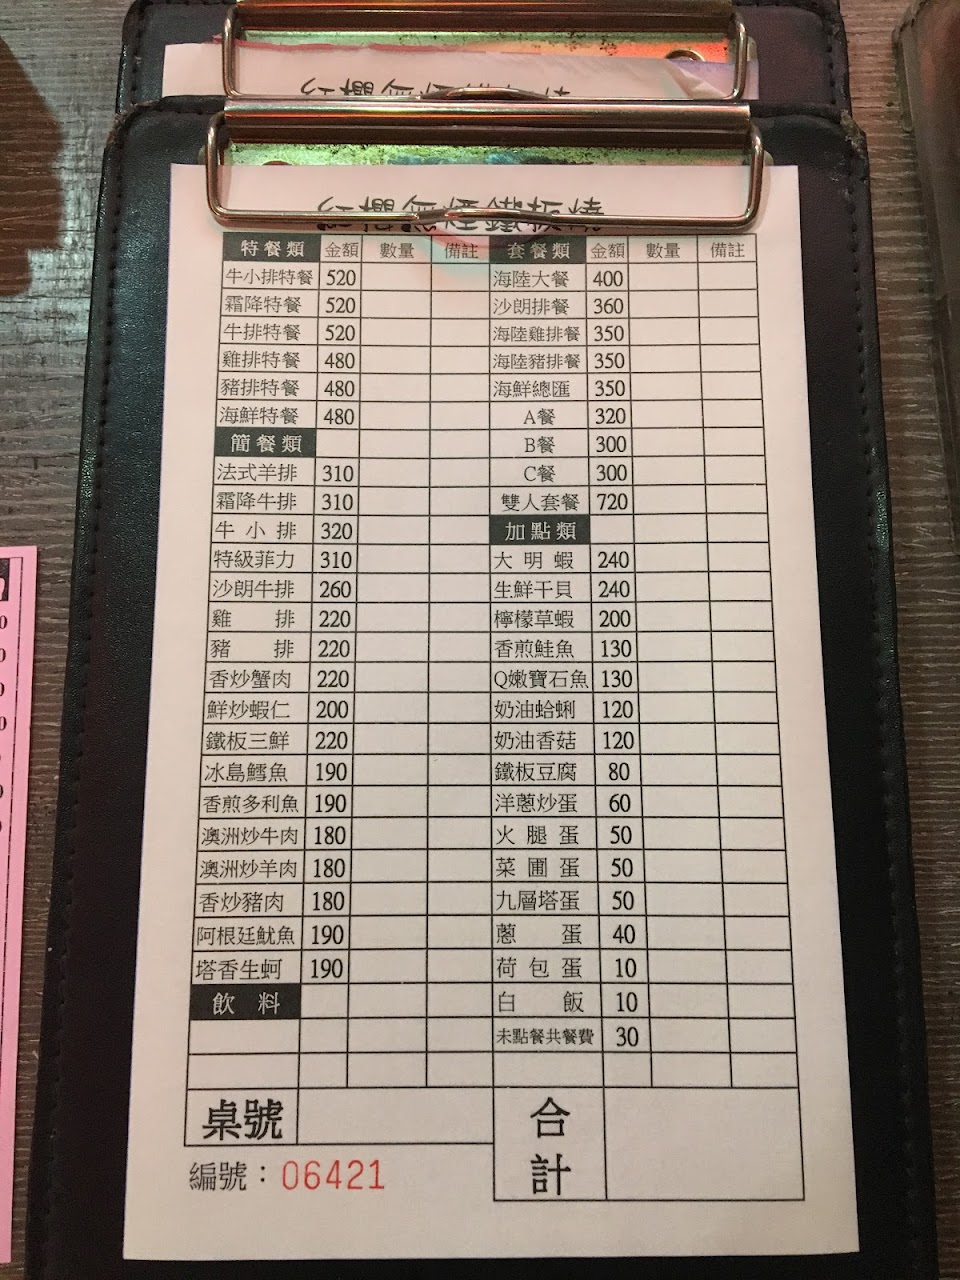 紅櫻無煙鐵板燒
特餐類 金額 數量 備註 套餐類 金額 數量 備註
牛小排特餐 520 海陸大餐 400
霜降特餐 520 沙朗排餐 360
牛排特餐 520 海陸雞排餐 350
雞排特餐 480 海陸豬排餐 350
豬排特餐 480 海鮮總匯 350
海鮮特餐 480 A餐 320
簡餐類 B餐 300
法式羊排 310 C餐 300
霜降牛排 310 雙人套餐 720
牛小排 320 加點類
特級菲力 310 大明蝦 240
沙朗牛排 260 生鮮干貝 240
雞排 220 檸檬草蝦 200
豬排 220 香煎鮭魚 130
香炒蟹肉 220 Q嫩寶石魚 130
鮮炒蝦仁 200 奶油蛤蜊 120
鐵板三鮮 220 奶油香菇 120
冰島鱈魚 190 鐵板豆腐 80
香煎多利魚 190 洋蔥炒蛋 60
澳洲炒牛肉 180 火腿蛋 50
澳洲炒羊肉 180 菜圃蛋 50
香炒豬肉 180 九層塔蛋 50
阿根廷魷魚 190 蔥蛋 40
塔香生蚵 190 荷包蛋 10
飲料 白飯 10
未點餐共餐費 30
桌號 合計
編號：06421